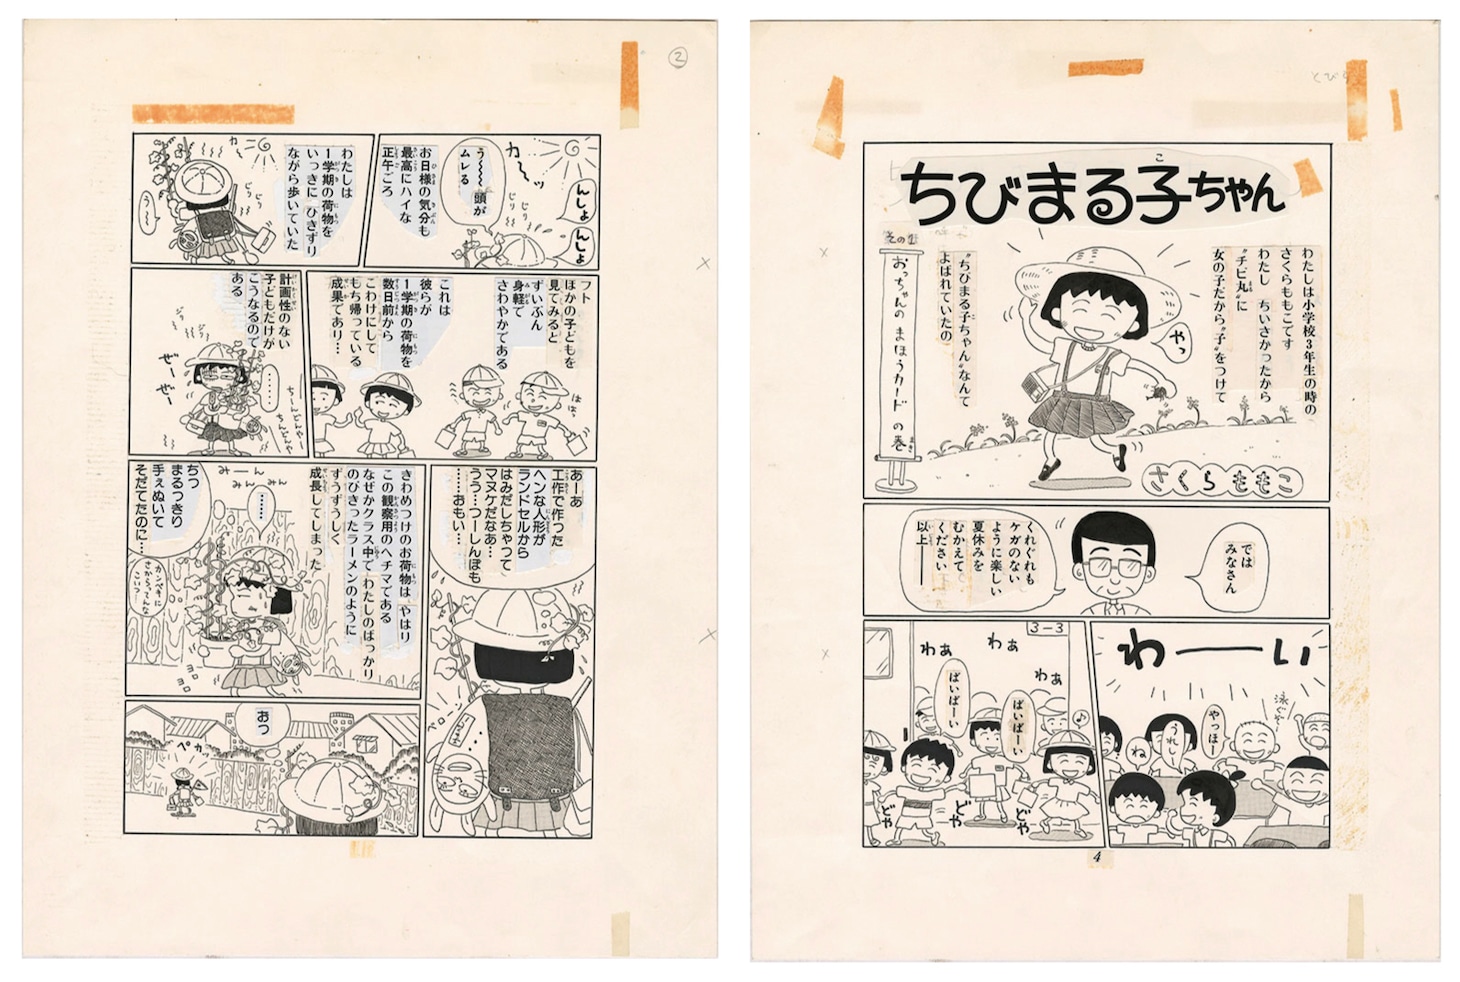 ちびまる子ちゃん
こ
わたしは小学校3年生の時の
さくらももこです
わたし ちいさかったから
〝チビ丸〟に
女の子だから〝子〟をつけて
〝ちびまる子ちゃん〟なんて
よばれていたの
やっ
その1
おっちゃんのまほうカードの巻
さくらももこ
では
みなさん
くれぐれも
ケガのない
ように楽しい
夏休みを
むかえて
ください
以上——
わーーい
泳ぐぞー
やっほー
うれしー
ね
3-3
わぁ
わぁ
わぁ
ばいばーい
ばいばーい
どや
どや
どや
4
2
んしょ
んしょ
カ〜〜ッ
う〜〜〜頭が
ムレる
じり
じり
お日様の気分も
最高にハイな
正午ごろ
わたしは
1学期の荷物を
いっきに ひきずり
ながら歩いていた
じり
じり
う〜
フト
ほかの子どもを
見てみると
ずいぶん
身軽で
さわやかである
これは
彼らが
1学期の荷物を
数日前から
こわけにして
もち帰っている
成果であり…
計画性のない
子どもだけが
こうなるので
ある
ぜーぜー
あーあ
工作で作った
ヘンな人形が
ランドセルから
はみだしちゃって
マヌケだなあ…
うう…つーしんぼも
……おもい…
ベローン
きわめつけのお荷物は やはり
この観察用のヘチマである
なぜかクラス中で わたしのばっかり
のびきったラーメンのように
ずうずうしく
成長してしまった
みーん
みんみん
……
ちっ
まるっきり
手ぇぬいて
そだてたのに…
ヨロ
ヨロ
おっ
ペカッ